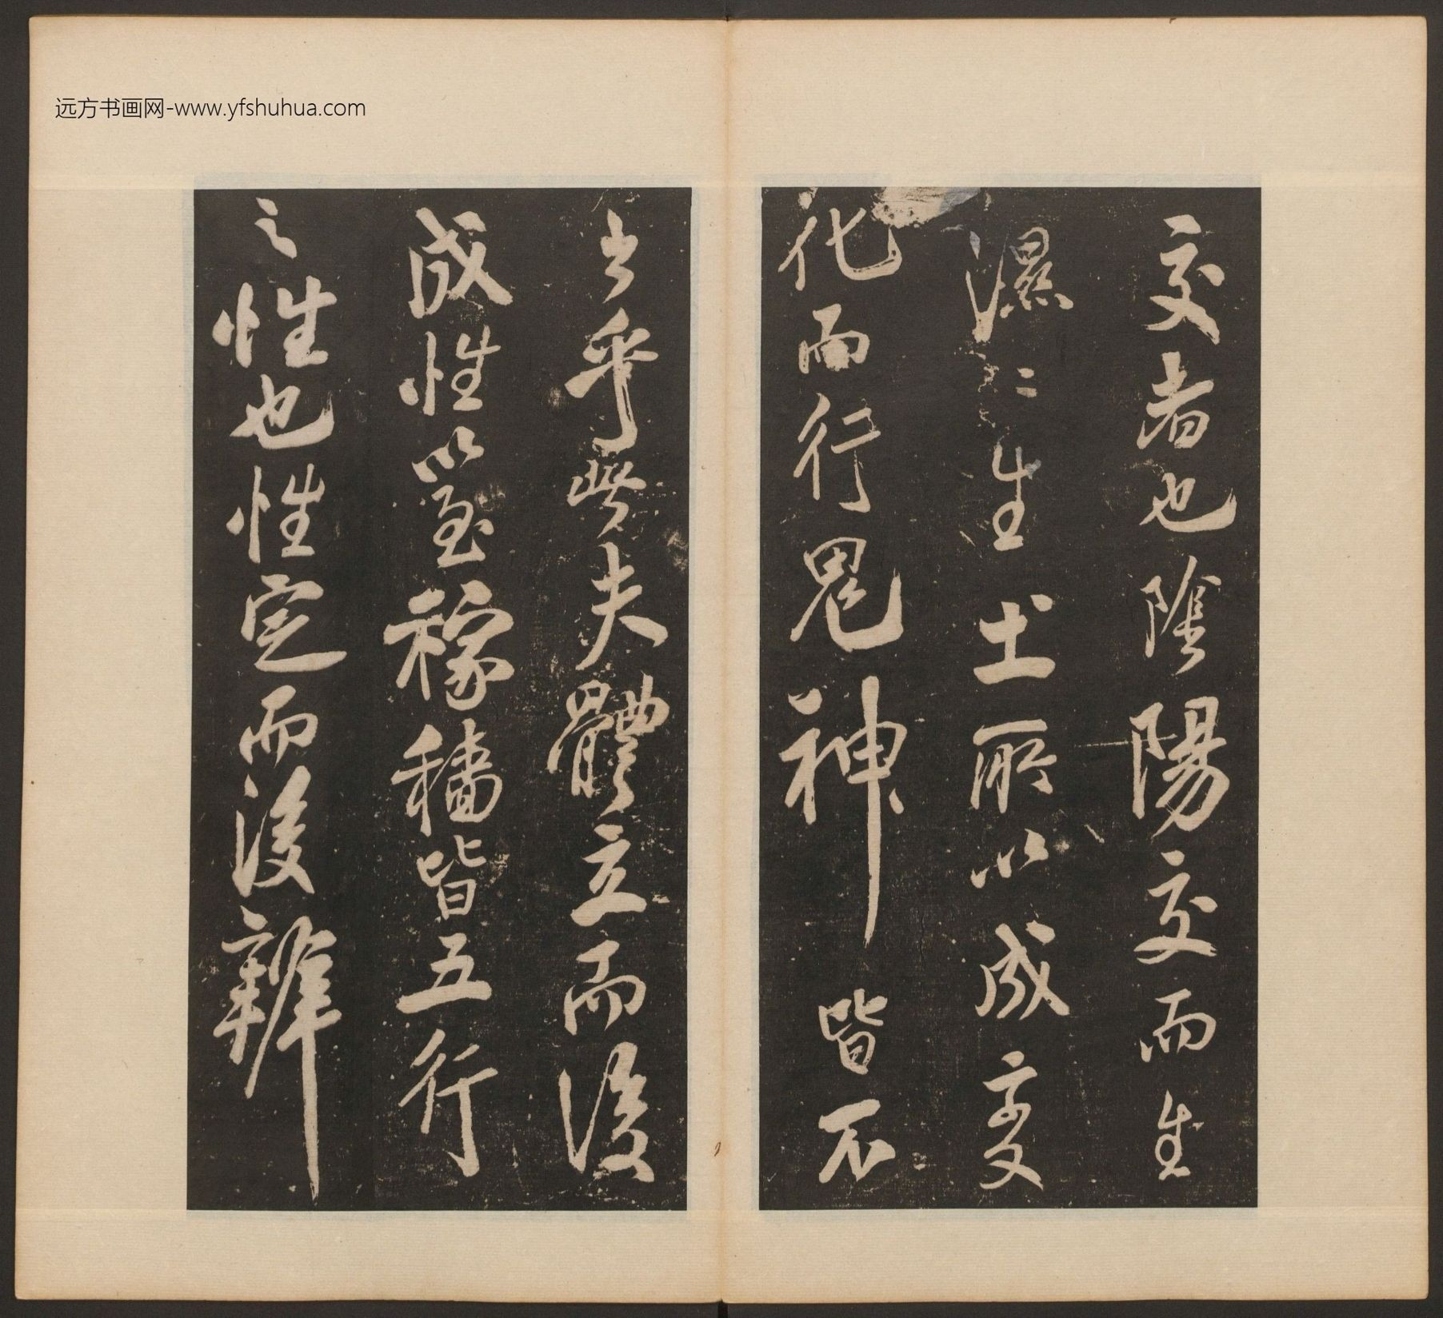 远方书画网-www.yfshuhua.com
交者也陰陽交而生
濕〻生土所以成变
化而行鬼神皆不
出乎此夫體立而後
成性以至稼穡皆五行
之性也性定而後辨